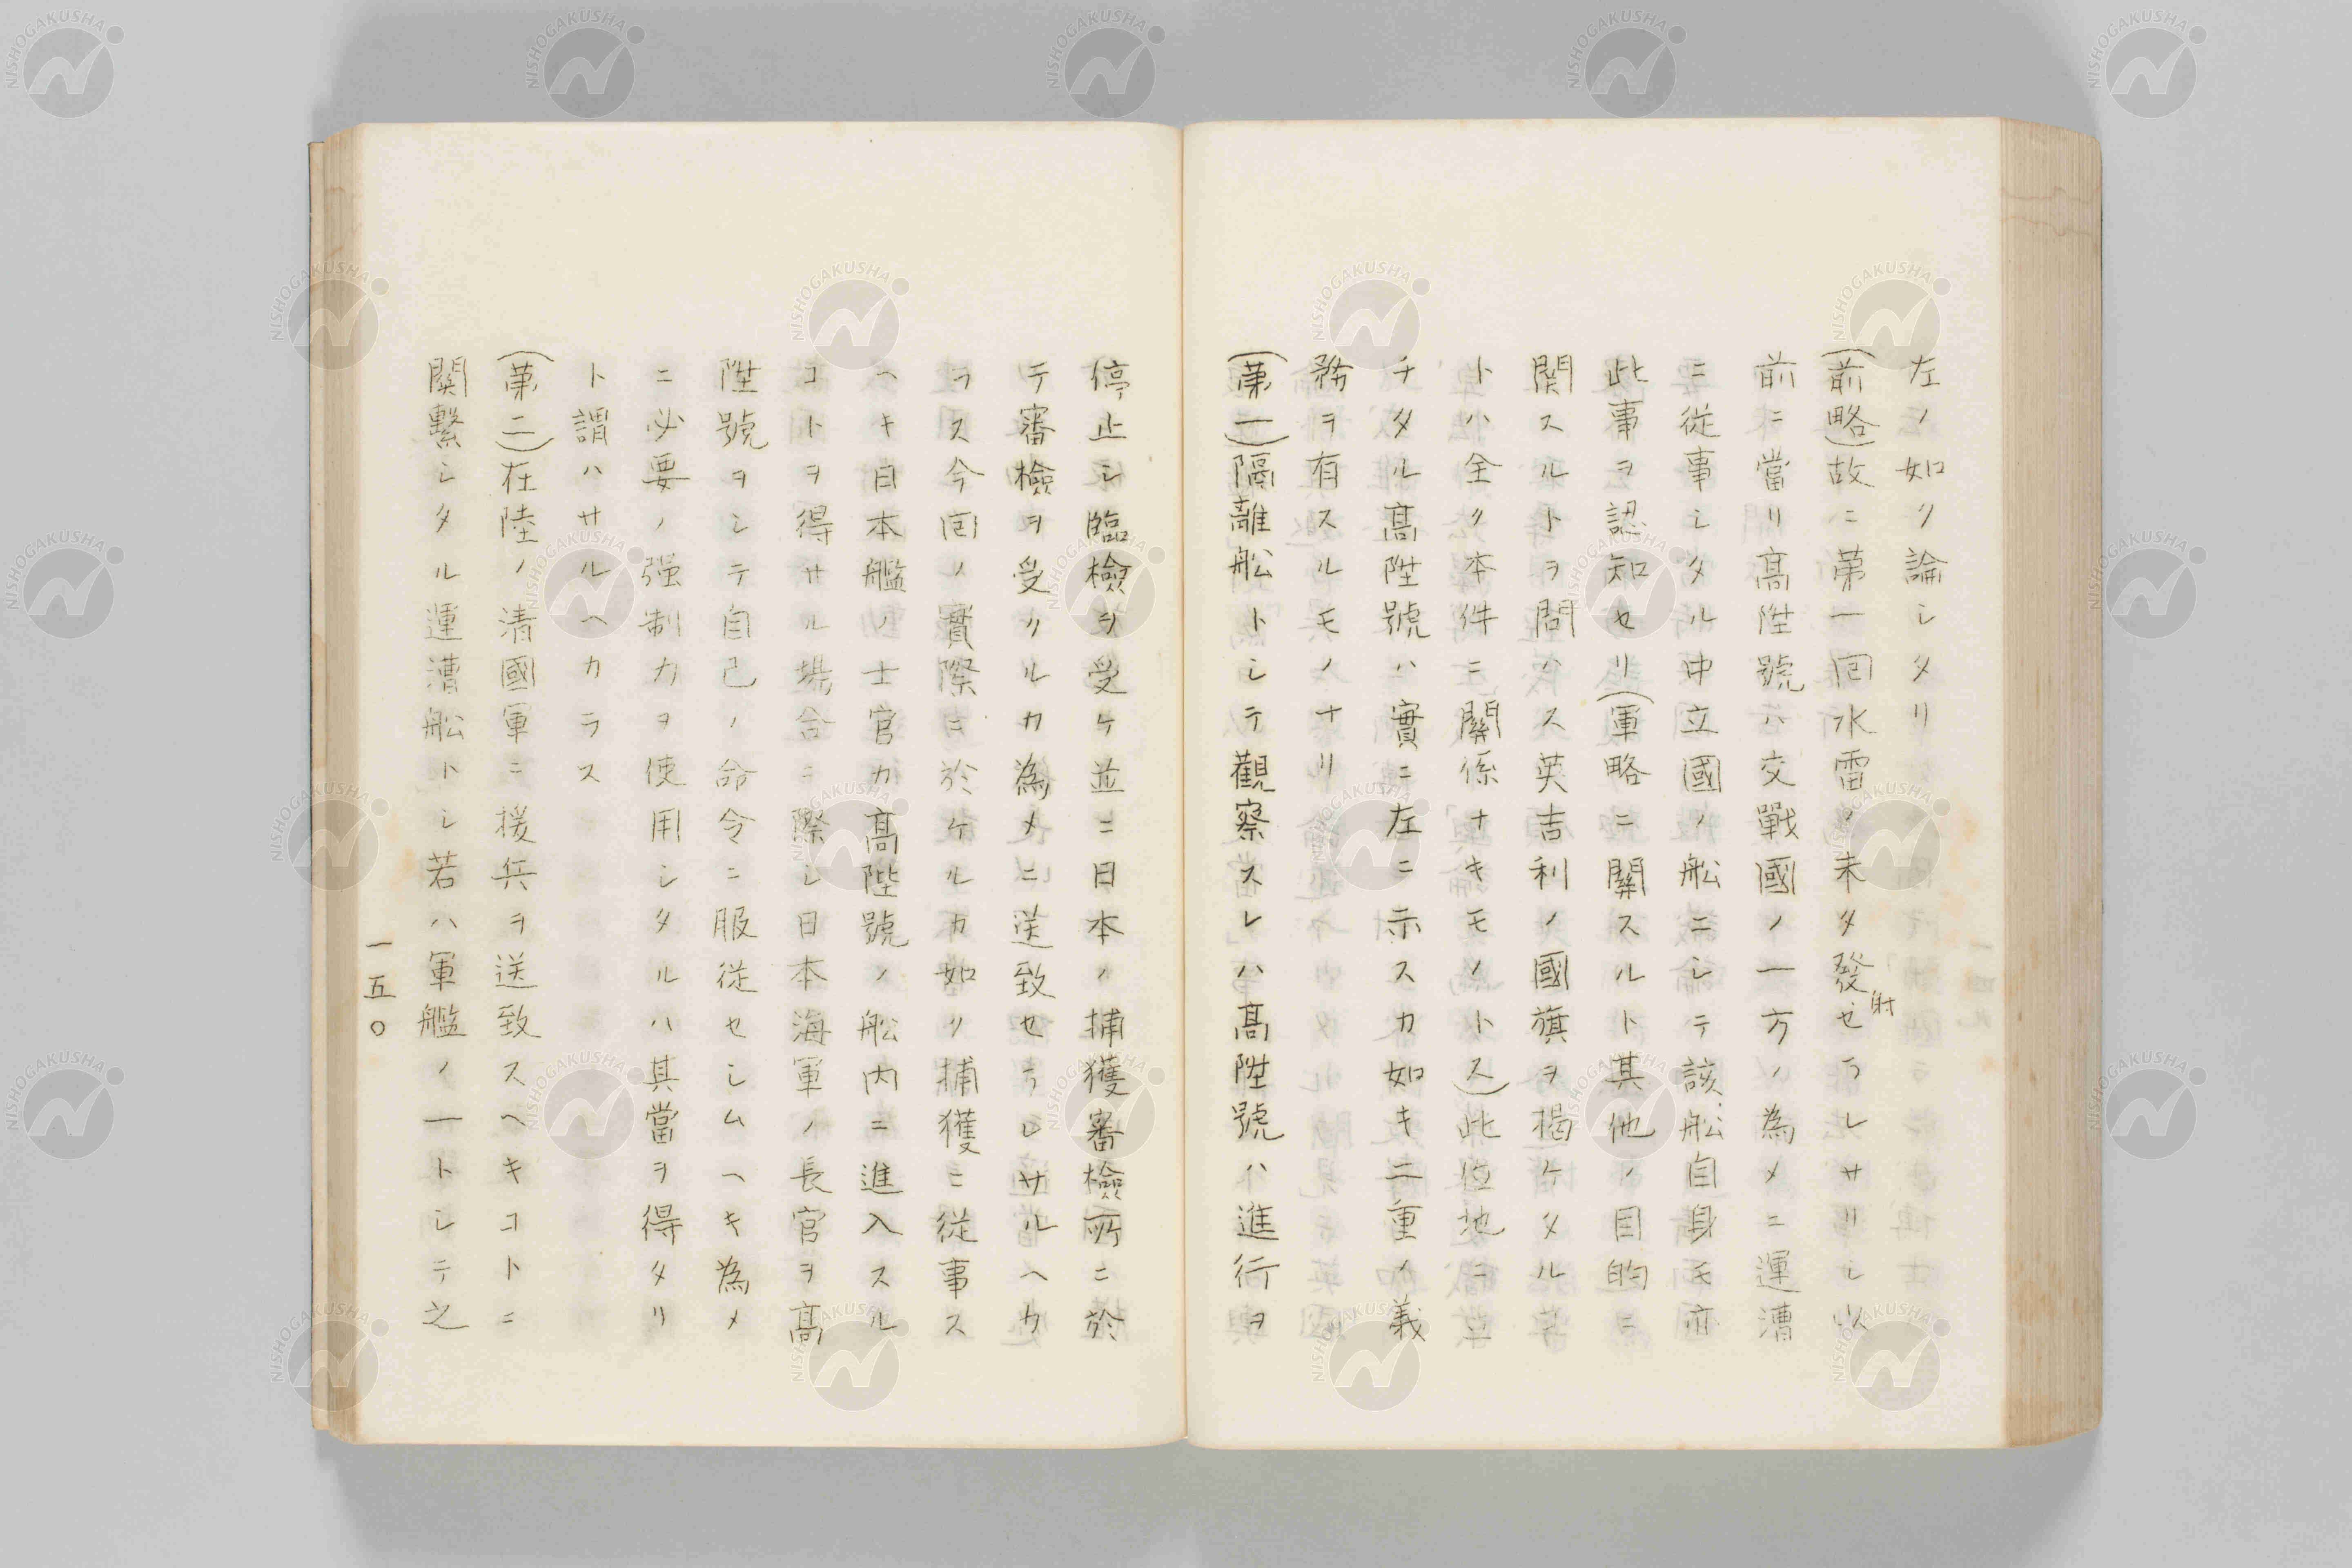 左ノ如ク論シタリ
(前略)故ニ第一囘水雷ノ未タ發射セラレサリシ以
前ニ當リ髙陞號ハ交戰國ノ一方ノ為メニ運漕
ニ従事シタル中立國ノ舩ニシテ該舩自身モ亦
此事ヲ認知セリ(軍略ニ關スルト其他ノ目的ニ
関スルトヲ問ハス英吉利ノ國旗ヲ揭ケタル
トハ全ク本件ニ關係ナキモノトス)此位地ニ立
チタル髙陞號ハ實ニ左ニ示スカ如キ二重ノ義
務ヲ有スルモノナリ
(第一)隔離舩トシテ觀察スレハ髙陞號ハ進行ヲ
停止シ臨檢ヲ受ケ並ニ日本ノ捕獲審檢所ニ於
テ審檢ヲ受クルカ為メニ送致セラレサルヘカ
ラス今囘ノ實際ニ於ケルカ如ク捕獲ニ從事ス
ヘキ日本艦ノ士官カ髙陞號ノ舩内ニ進入スル
コトヲ得サル場合ニ際シ日本海軍ノ長官ヲ髙
陞號ヲシテ自己ノ命令ニ服從セシムヘキ為メ
ニ必要ノ强制力ヲ使用シタルハ其當ヲ得タリ
ト謂ハサルヘカラス
(第二)在陸ノ清國軍ニ援兵ヲ送致スヘキコトニ
關繫シタル運漕舩トシ若ハ軍艦ノ一トシテ之
一五〇
NISHOGAKUSHA